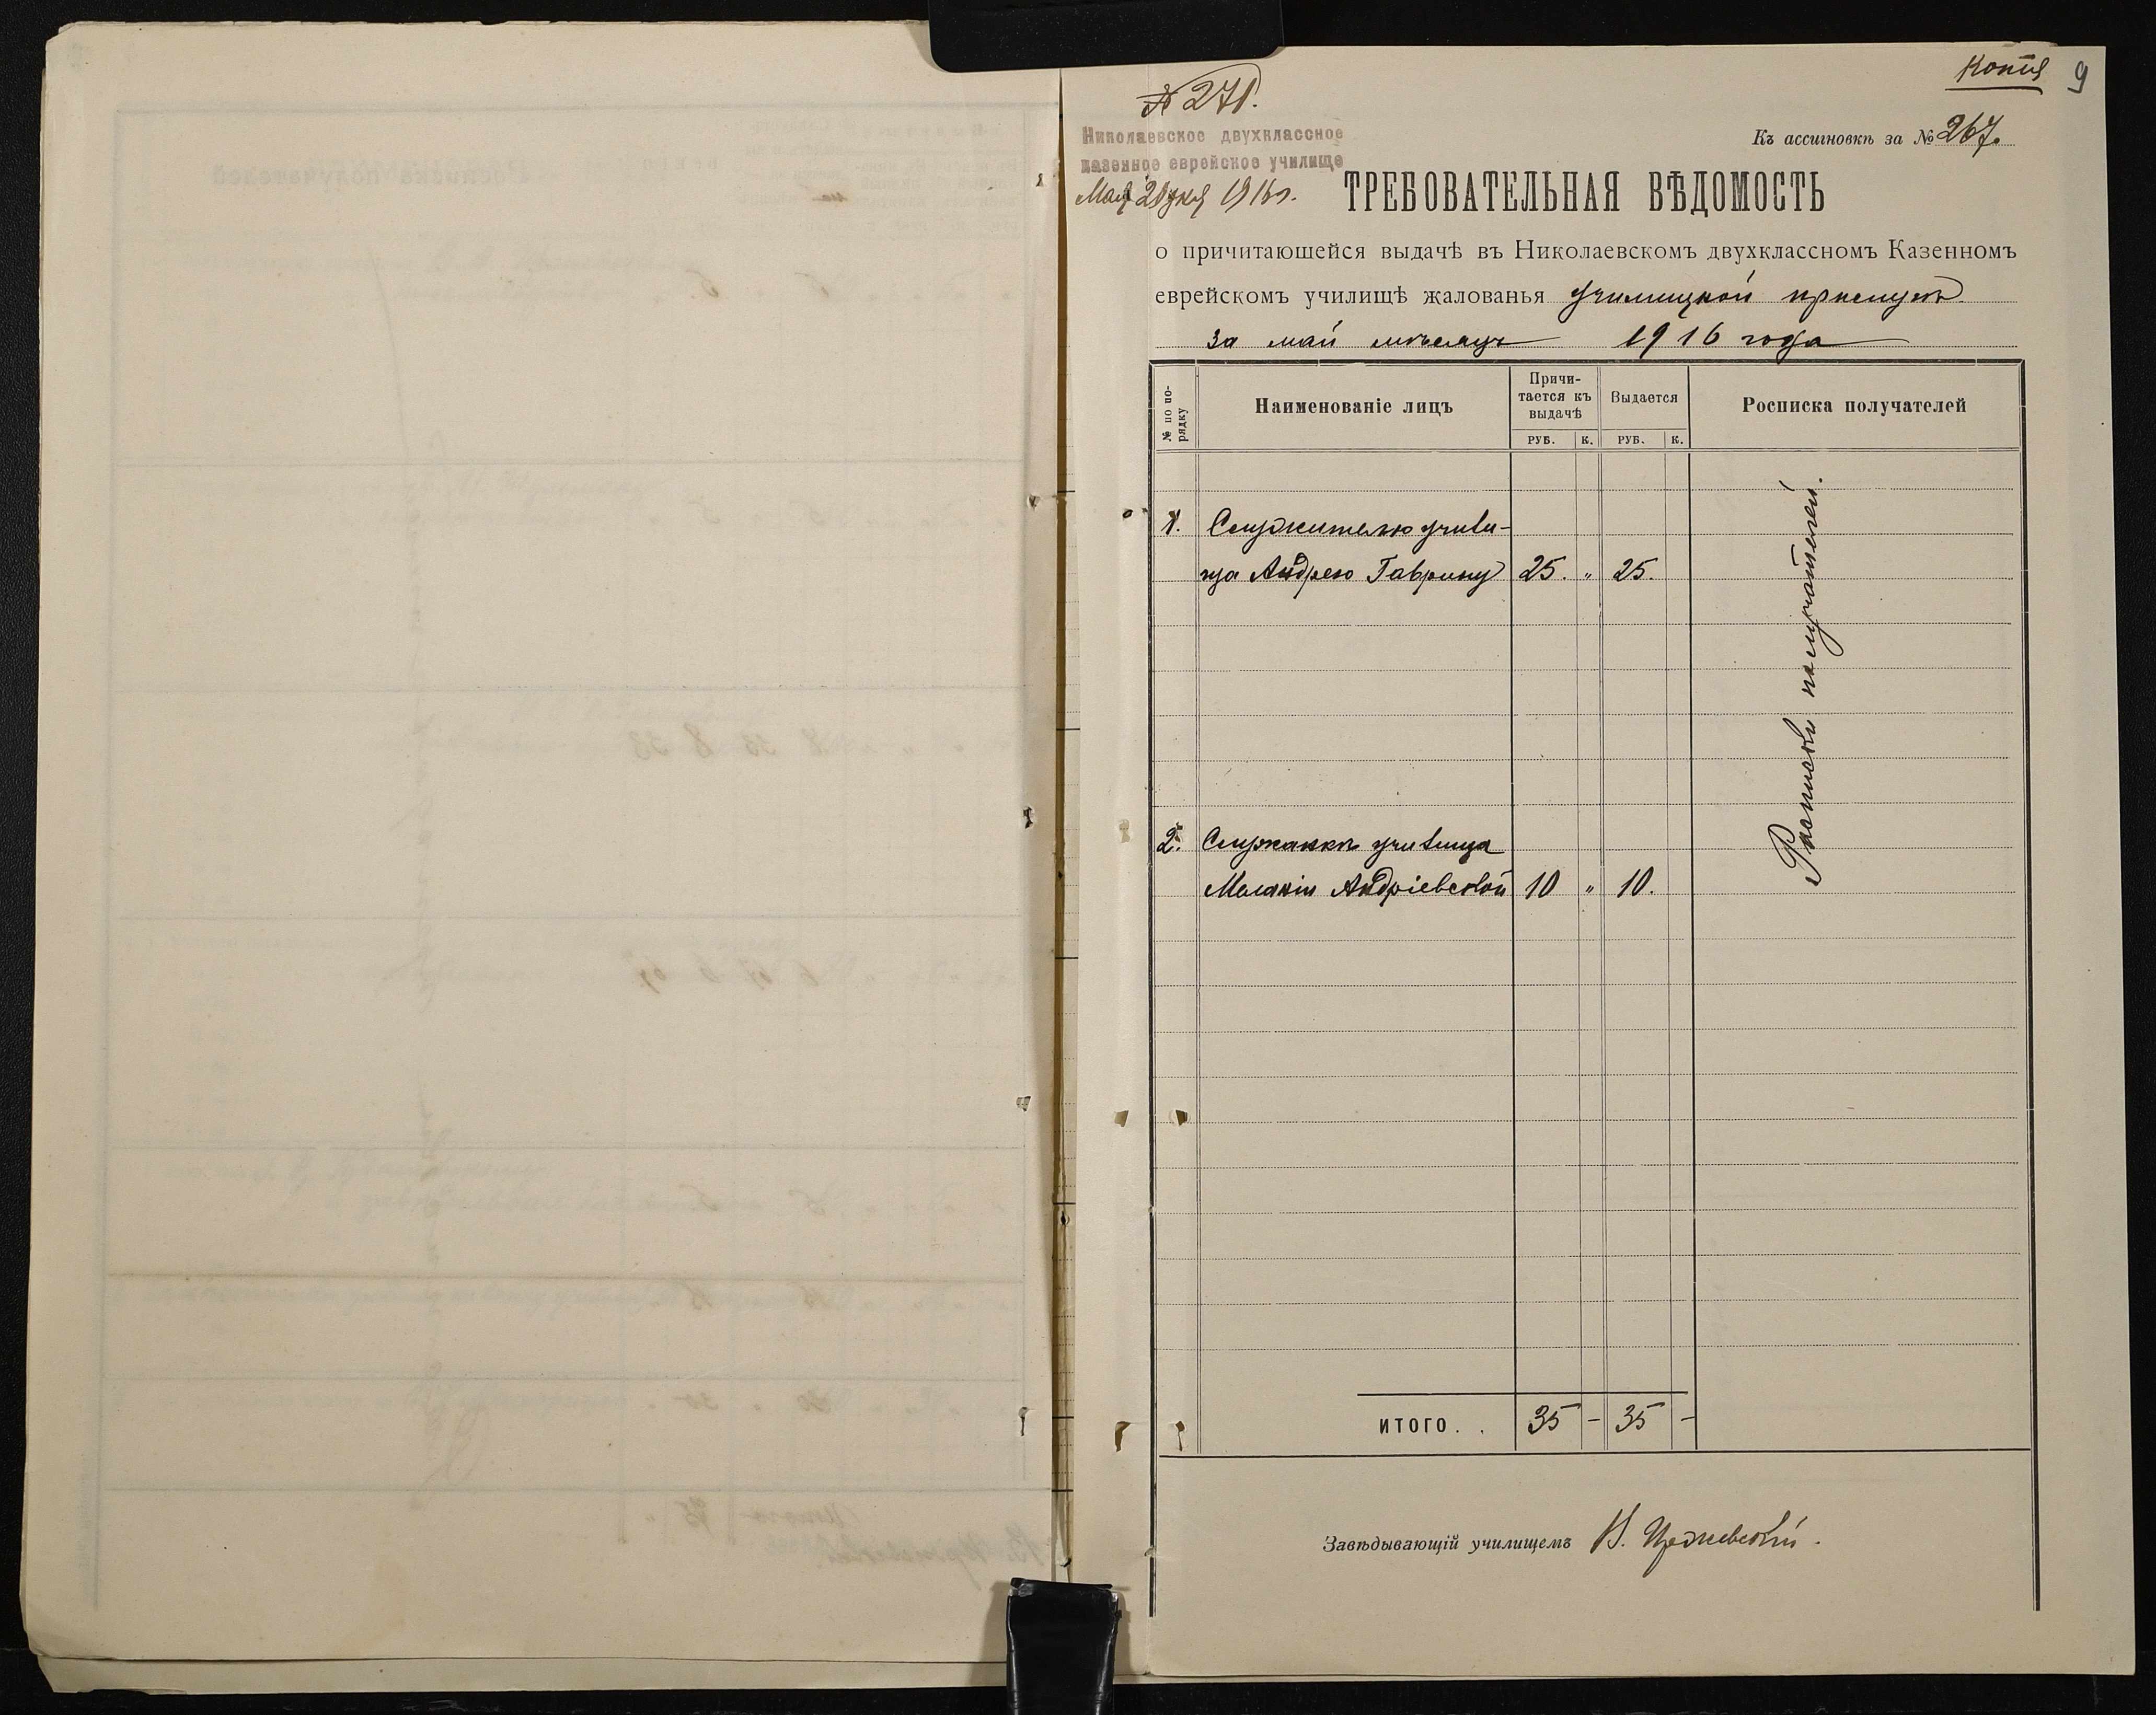 Копія 9
№ 271.
Къ ассигновкѣ за № 267.
Николаевское двухклассное
казенное еврейское училище
Мая 20 дня 1916 г.
ТРЕБОВАТЕЛЬНАЯ ВѢДОМОСТЬ
о причитающейся выдачѣ въ Николаевскомъ двухклассномъ Казенномъ
еврейскомъ училищѣ жалованья училищной прислугѣ
за май мѣсяцъ 1916 года
№ по по-
рядку
Наименованіе лицъ
Причи-
тается къ
выдачѣ
Выдается
Росписка получателей
РУБ. К. РУБ. К.
1. Служителю учили-
ща Андрею Гаврину 25. „ 25.
2. Служанкѣ училища
Меланіи Андріевской 10 „ 10.
Расписки получателей.
ИТОГО. . 35 - 35 -
Завѣдывающій училищемъ